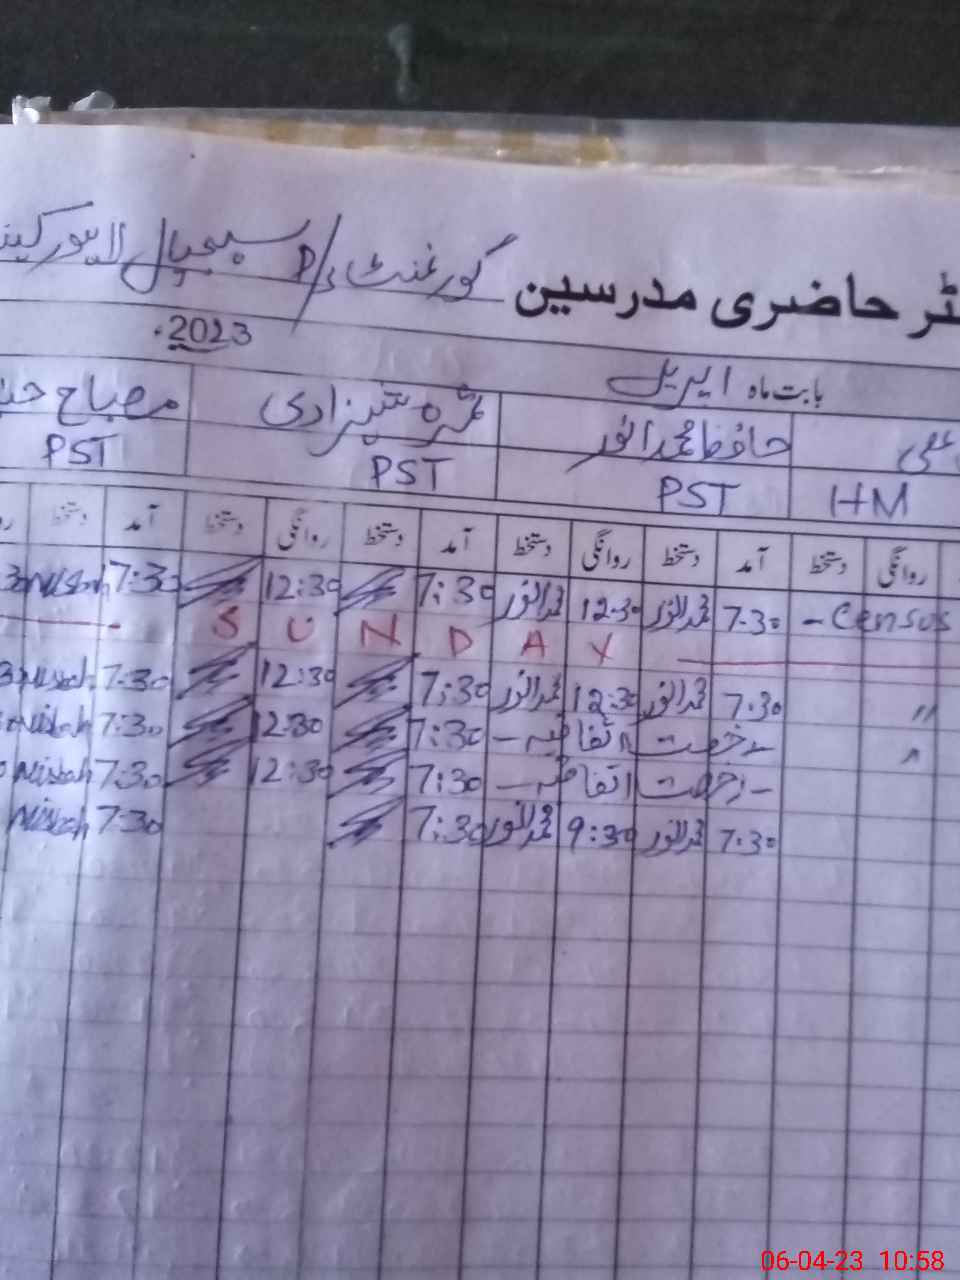 ٹر حاضری مدرسین گورنمنٹ P/S سیجپال لاہور کینٹ
بابت ماہ اپریل 2023
علی حافظ محمد انور شہزادی مصباح
HM PST PST PST
روانگی دستخط آمد دستخط روانگی دستخط آمد دستخط روانگی دستخط آمد دستخط
Census - 7.30 محمد انور 12.30 محمد انور 7:30 12:30 7:30 Misbah
S U N D A Y
" 7.30 محمد انور 12:30 محمد انور 7:30 12:30 7:30 Misbah
" - رخصت اتفاقیہ - 7:30 12:30 7:30 Misbah
- رخصت اتفاقیہ - 7:30 12:30 7:30 Misbah
7.30 محمد انور 9:30 محمد انور 7:30 7:30 Misbah
06-04-23 10:58